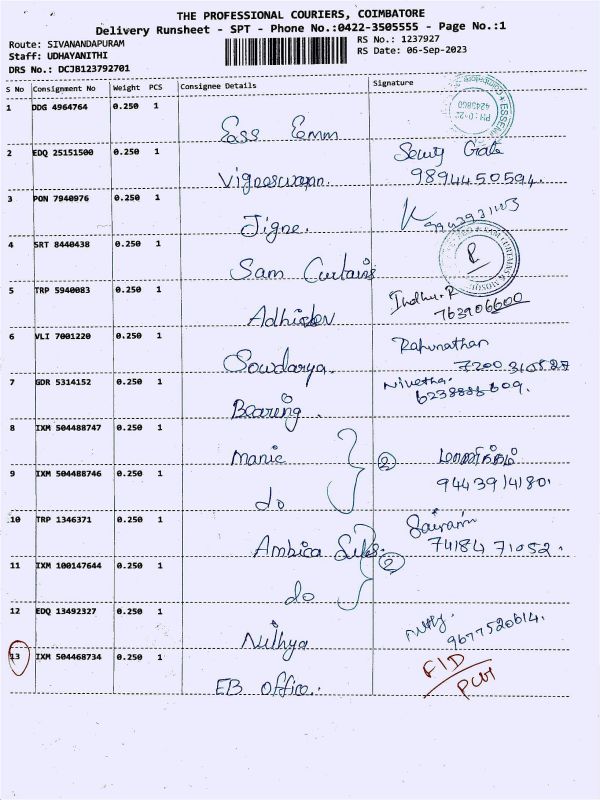 THE PROFESSIONAL COURIERS, COIMBATORE
Delivery Runsheet - SPT - Phone No.:0422-3505555 - Page No.:1
Route: SIVANANDAPURAM
RS No.: 1237927
Staff: UDHAYANITHI
RS Date: 06-Sep-2023
DRS No.: DCJB123792701
S No Consignment No Weight PCS Consignee Details Signature
1 DDG 4964764 0.250 1
Ess Emm
2 EDQ 25151500 0.250 1 Secuty Gate
Vigneswaran. 9894450594.
3 PON 7940976 0.250 1
Jigne.
4 SRT 8440438 0.250 1
Sam Curtains
5 TRP 5940083 0.250 1 Indhu.R
Adhidev 763906600
6 VLI 7001220 0.250 1 Ragunathan
Sowdarya. 7200310527
7 GDR 5314152 0.250 1 Nivetha.
Bearing.
8 IXM 504488747 0.250 1
Manic 2
9 IXM 504488746 0.250 1
do 9443914180.
10 TRP 1346371 0.250 1 Sairam
Ambica Silks. 74184 71052.
11 IXM 100147644 0.250 1 2
do
12 EDQ 13492327 0.250 1
Nithya 9677520614.
13 IXM 504468734 0.250 1
EB office.